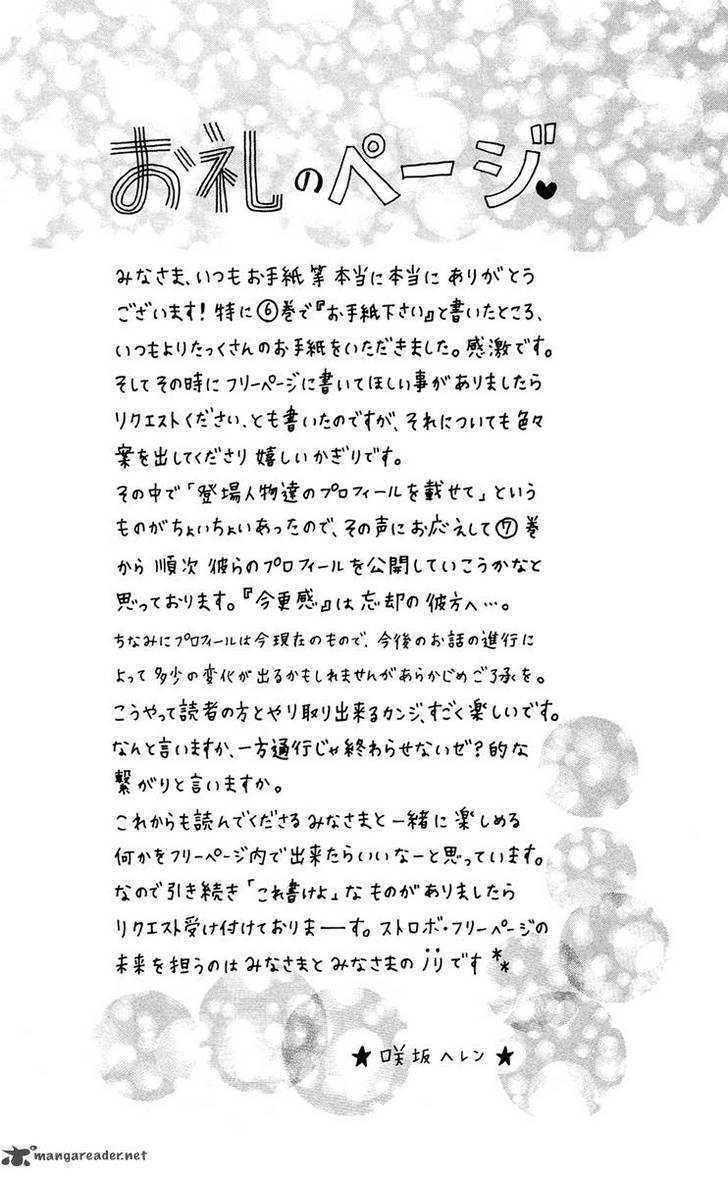 お礼のページ♥
みなさま、いつもお手紙等本当に本当にありがとう
ございます!特に⑥巻で『お手紙下さい』と書いたところ、
いつもよりたっくさんのお手紙をいただきました。感激です。
そしてその時にフリーページに書いてほしい事がありましたら
リクエストください、とも書いたのですが、それについても色々
案を出してくださり嬉しいかぎりです。
その中で「登場人物達のプロフィールを載せて」という
ものがちょいちょいあったので、その声にお応えして⑦巻
から順次彼らのプロフィールを公開していこうかなと
思っております。『今更感』は忘却の彼方へ…。
ちなみにプロフィールは今現在のもので、今後のお話の進行に
よって多少の変化が出るかもしれませんがあらかじめご了承を。
こうやって読者の方とやり取り出来るカンジ、すごく楽しいです。
なんと言いますか、一方通行じゃ終わらせないゼ?的な
繋がりと言いますか。
これからも読んでくださるみなさまと一緒に楽しめる
何かをフリーページ内で出来たらいいなーと思っています。
なので引き続き「これ書けよ」なものがありましたら
リクエスト受け付けておりまーーす。ストロボ・フリーページの
未来を担うのはみなさまとみなさまのです**
★咲坂ヘレン★
mangareader.net